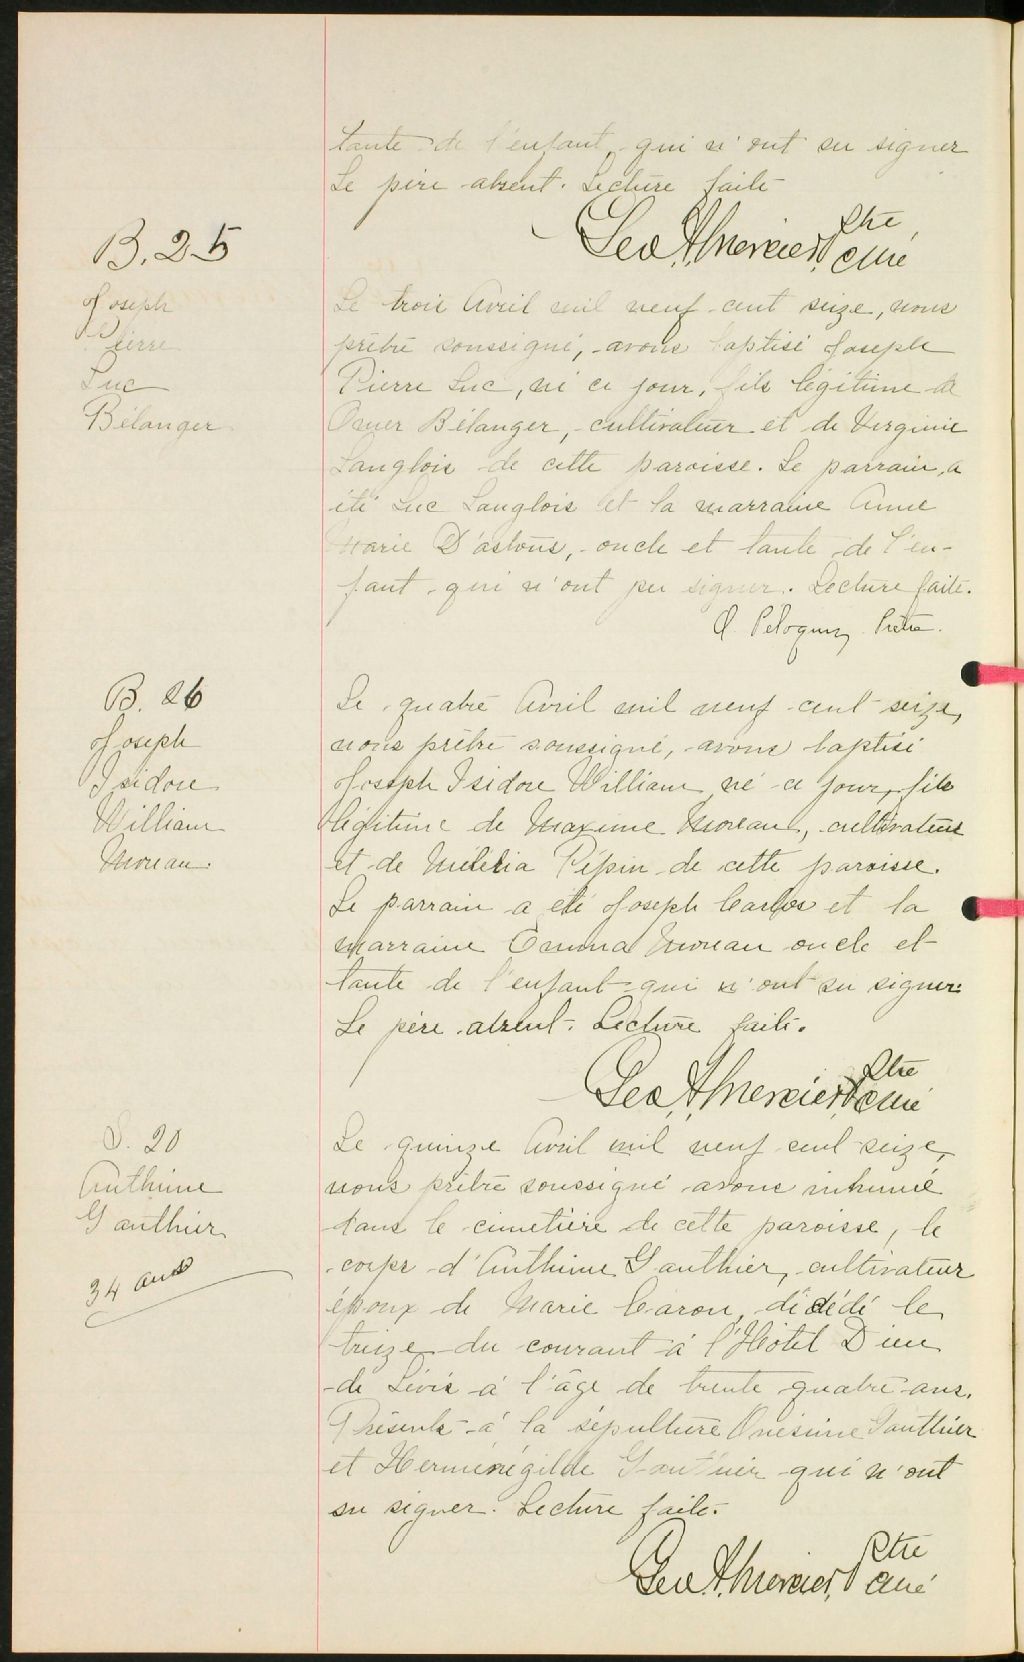 tante de l'enfant, qui n'ont su signer
Le père absent. Lecture faite
Geo. A. Mercier, Ptre
curé
B. 25
Joseph
Pierre
Luc
Bélanger
Le trois Avril mil neuf cent seize, nous
prêtre soussigné, avons baptisé Joseph
Pierre Luc, né ce jour, fils légitime de
Omer Bélanger, cultivateur et de Virginie
Langlois de cette paroisse. Le parrain, a
été Luc Langlois et la marraine Anne
Marie D'astous, oncle et tante de l'en-
fant qui n'ont pu signer. Lecture faite.
Peloquin Prêtre.
B. 26
Joseph
Isidore
William
Moreau.
Le quatre Avril mil neuf cent seize,
nous prêtre soussigné, avons baptisé
Joseph Isidore William né ce jour, fils
légitime de Maxime Moreau, cultivateur
et de Pépin de cette paroisse.
Le parrain a été Joseph et la
marraine Emma Moreau oncle et
tante de l'enfant qui n'ont su signer.
Le père absent. Lecture faite.
Geo. A. Mercier, Ptre
curé
S. 20
Anthime
Gauthier
34 ans
Le quinze Avril mil neuf cent seize,
nous prêtre soussigné avons inhumé
dans le cimetière de cette paroisse, le
corps d'Anthime Gauthier, cultivateur
époux de Marie Caron, décédé le
treize du courant à l'Hôtel Dieu
de Lévis à l'âge de trente quatre ans.
Présents à la sépulture Onésime Gauthier
et Herménégilde Gauthier qui n'ont
su signer. Lecture faite.
Geo. A. Mercier, Ptre
curé